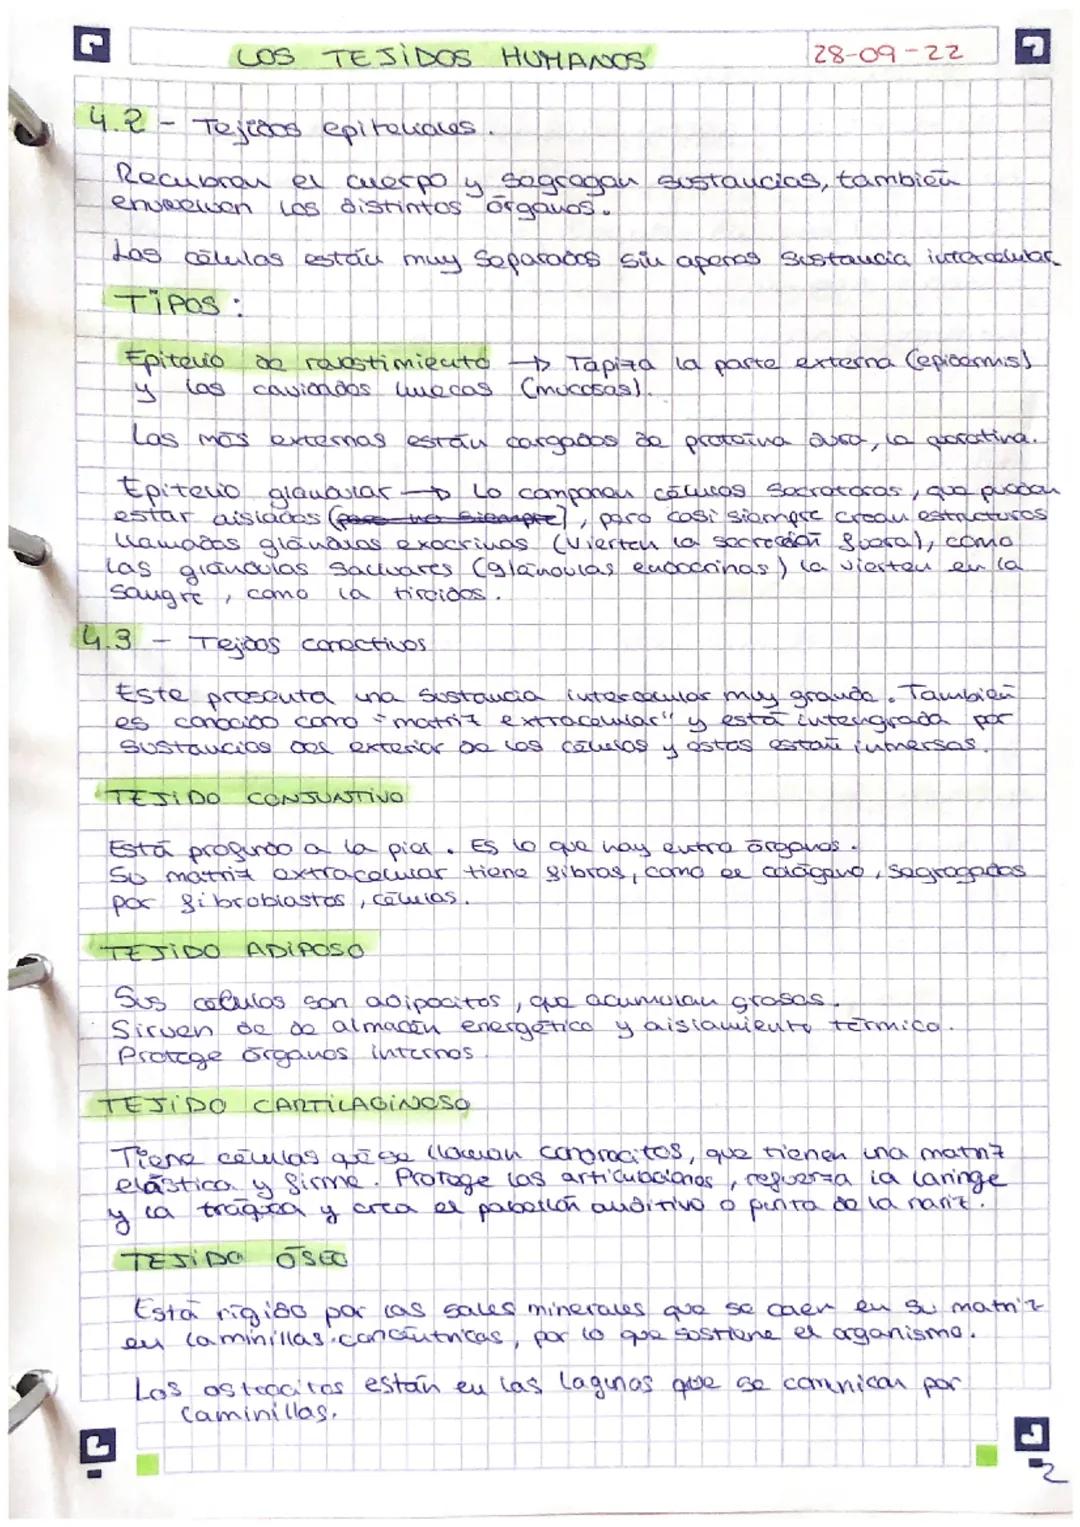 LOS TEJIDOS HUMANOS
28-09-22
4.2 - Tejidos epiteliales.
Recubren el cuerpo y segregan sustancias, también
envuelven los distintos órganos.
Las células están muy separadas sin apenas sustancia intercelular
TIPOS:
Epitelio de revestimiento → Tapiza la parte externa (epidermis)
y las cavidades huecas (mucosas).
Las más externas están cargadas de proteína dura, la queratina.
Epitelio glandular → Lo componen células secretoras, que pueden
estar aisladas (pero no siempre), pero casi siempre crean estructuras
llamadas glándulas exocrinas (vierten la secreción fuera), como
las glándulas salivares (glándulas endocrinas) la vierten en la
sangre, como la tiroides.
4.3 - Tejidos conectivos
Este presenta una sustancia intercelular muy grande. También
es conocido como "matriz extracelular" y está intengrada por
sustancias del exterior de las células y estas están inmersas.
TEJIDO CONJUNTIVO
Está profundo a la piel. Es lo que hay entre órganos.
Su matriz extracelular tiene fibras, como el colágeno, segregadas
por fibroblastos, células.
TEJIDO ADIPOSO
Sus células son adipocitos, que acumulan grasas.
Sirven de de almacén energético y aislamiento térmico.
Protege órganos internos.
TEJIDO CARTILAGINOSO
Tiene células que se llaman condrocitos, que tienen una matriz
elástica y firme. Protege las articulaciones, refuerza la laringe
y la tráquea y crea el pabellón auditivo o punta de la nariz.
TEJIDO ÓSEO
Está rígido por las sales minerales que se caen en su matriz
en laminillas concéntricas, por lo que sostiene el organismo.
Los osteocitos están en las lagunas que se comnican por
laminillas.
2